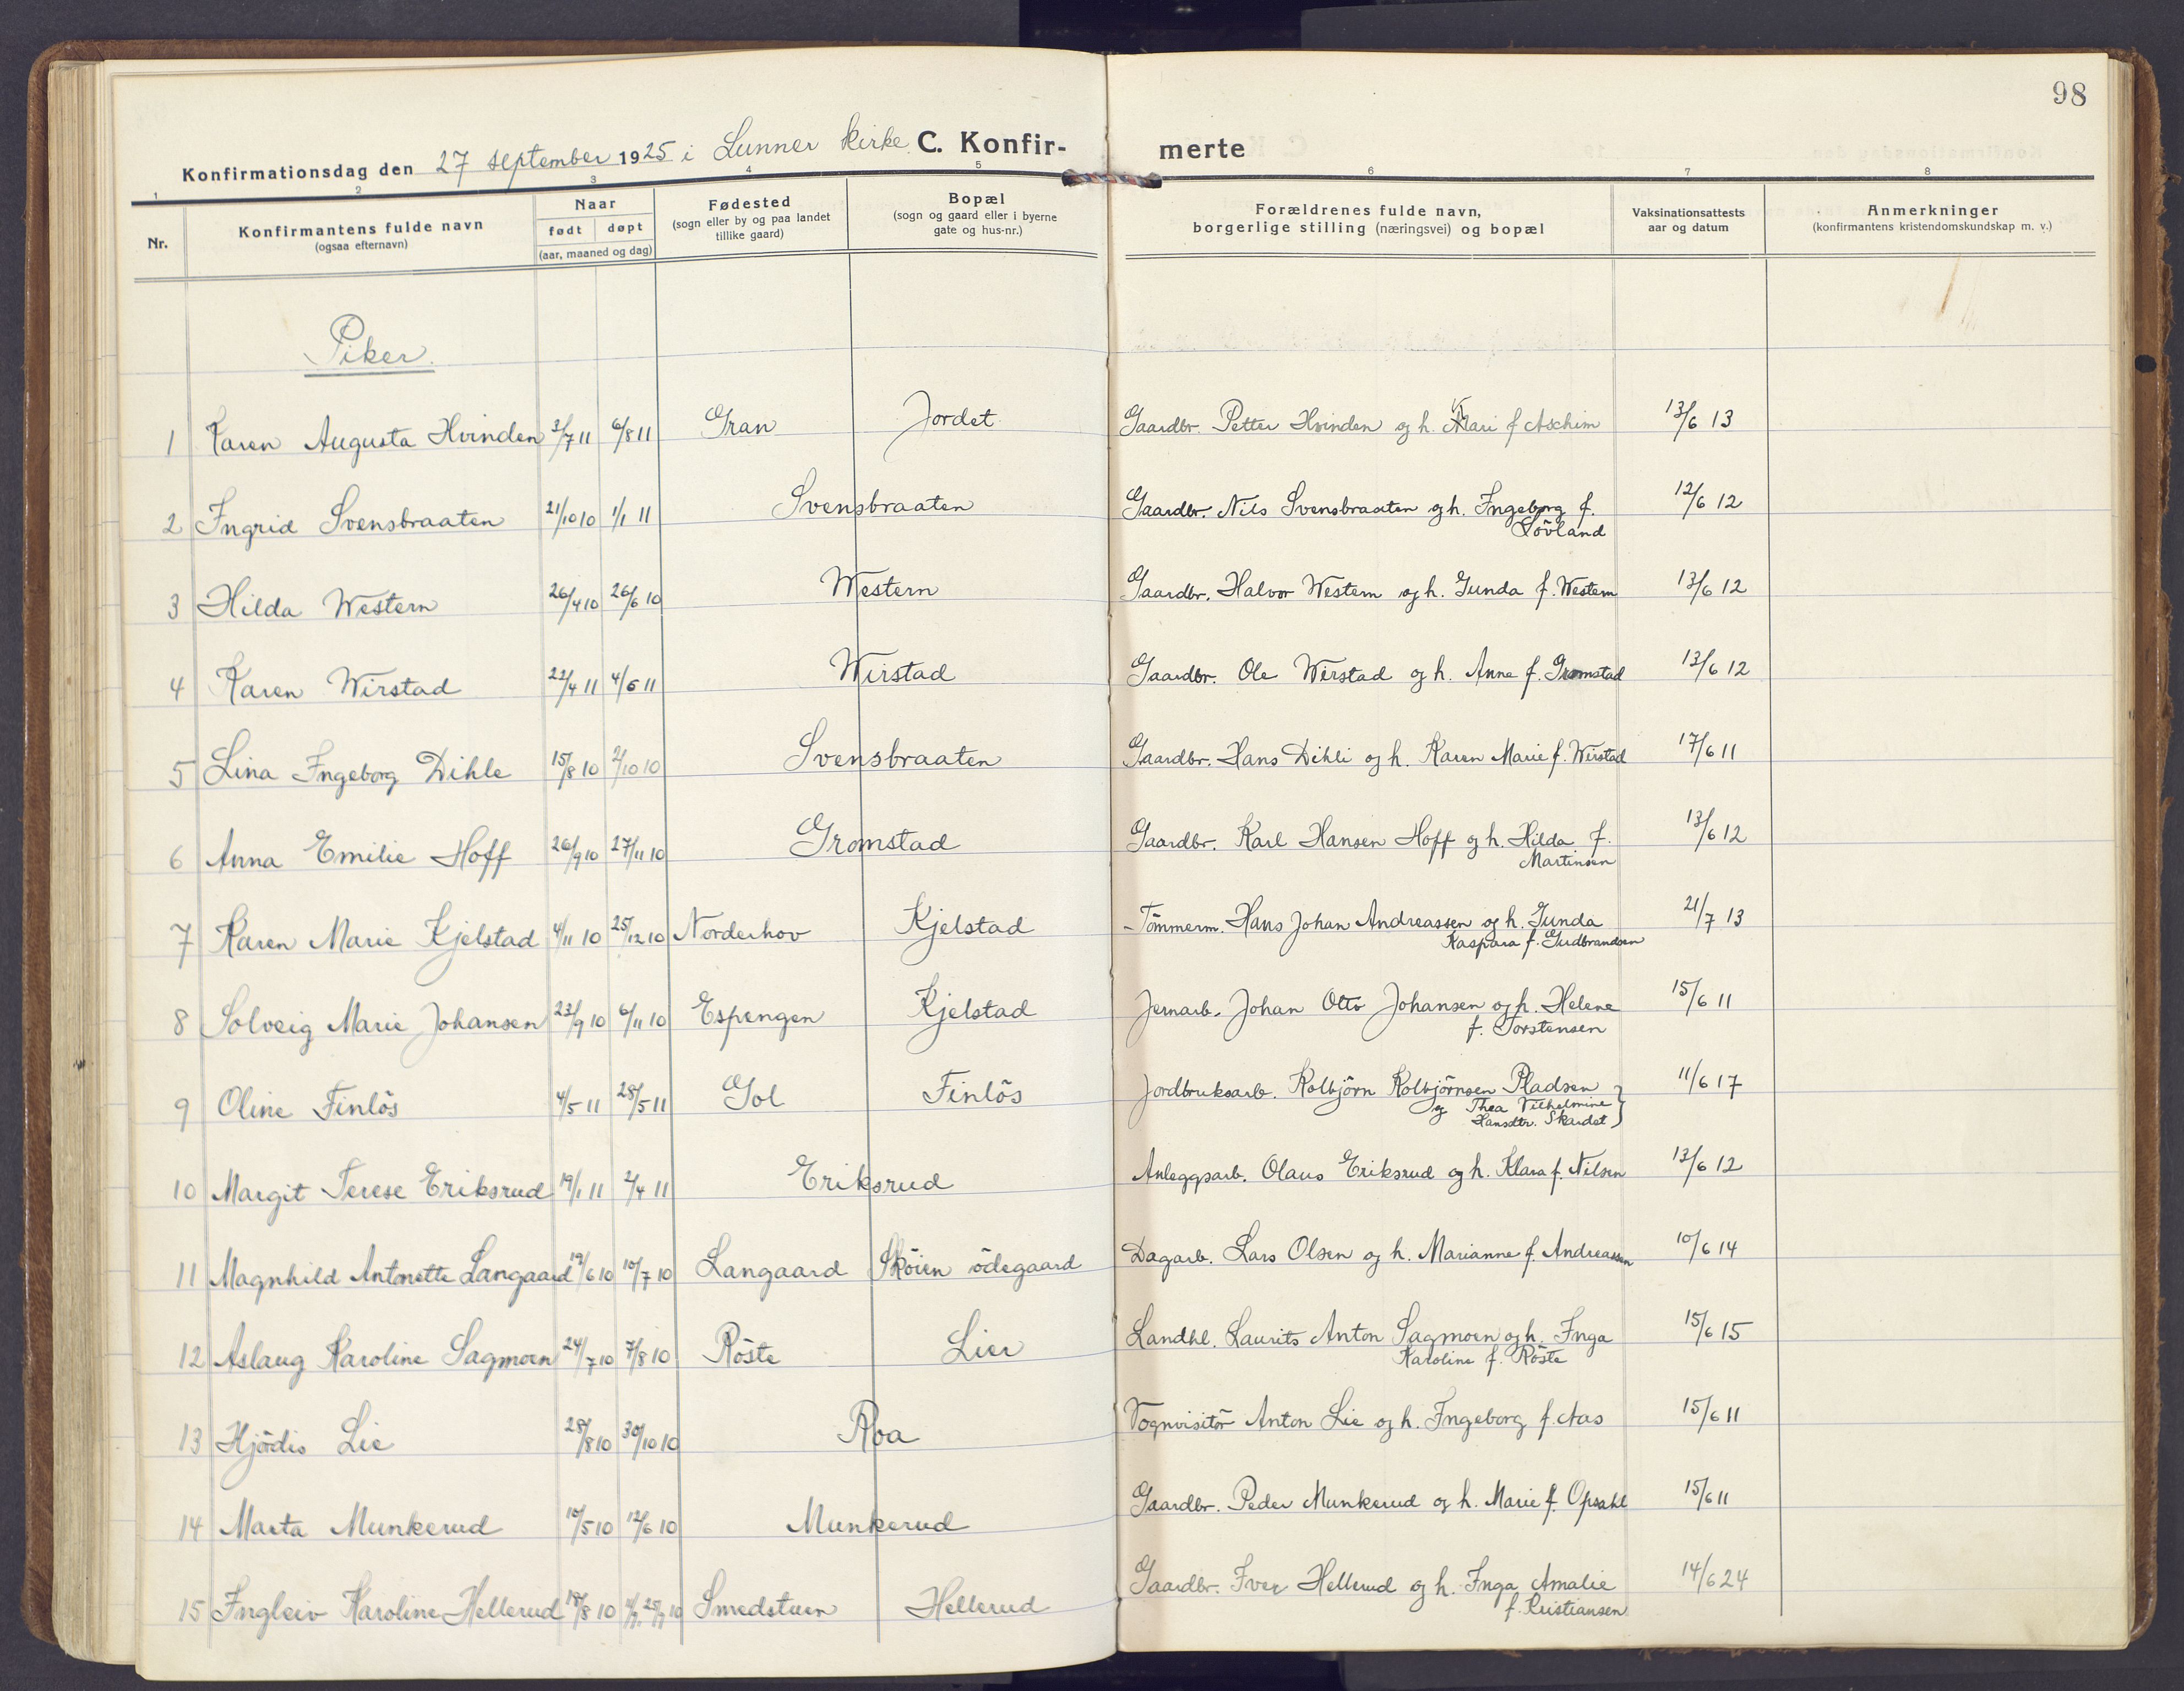 98
Konfirmationsdag den 27 september 1925 i Lunner kirke C. Konfir- merte
1 2 3 4 5 6 7 8
Nr.
Konfirmantens fulde navn
(ogsaa efternavn)
Naar
født døpt
(aar, maaned og dag)
Fødested
(sogn eller by og paa landet
tillike gaard)
Bopæl
(sogn og gaard eller i byerne
gate og hus-nr.)
Forældrenes fulde navn,
borgerlige stilling (næringsvei) og bopæl
Vaksinationsattests
aar og datum
Anmerkninger
(konfirmantens kristendomskundskap m. v.)
Piker.
1 Karen Augusta Hvinden 3/7 11 6/8 11 Gran Jordet Gaardbr. Petter Hvinden og h. Mari f Aschim 13/6 13
2 Ingrid Svensbraaten 21/10 10 1/1 11 Svensbraaten Gaardbr. Nils Svensbraaten og h. Ingeborg f. 12/6 12
Lövland
3 Hilda Western 26/4 10 26/6 10 Western Gaardbr. Halvor Western og h. Gunda f. Western 13/6 12
4 Karen Wirstad 22/4 11 4/6 11 Wirstad Gaardbr. Ole Wirstad og h. Anne f. Gromstad 13/6 12
5 Lina Ingeborg Dihle 15/8 10 2/10 10 Svensbraaten Gaardbr. Hans Dihli og h. Karen Marie f. Wirstad 17/6 11
6 Anna Emilie Hoff 26/9 10 27/11 10 Gromstad Gaardbr. Karl Hansen Hoff og h. Hilda f. 13/6 12
Martinsen
7 Karen Marie Kjelstad 4/11 10 25/12 10 Norderhov Kjelstad Tömmerm. Hans Johan Andreassen og h. Gunda 21/7 13
Kaspara f. Gudbrandsen
8 Solveig Marie Johansen 23/9 10 6/11 10 Espengen Kjelstad Jernarb. Johan Otto Johansen og h. Helene 15/6 11
f. Torstensen
9 Oline Finlös 4/5 11 28/5 11 Gol Finlös Jordbruksarb. Kolbjörn Kolbjörnsen Pladsen 11/6 17
og Thea Vilhelmine
Hansdtr. Skardet
10 Margit Terese Eriksrud 19/1 11 2/4 11 Eriksrud Anleggsarb. Olaus Eriksrud og h. Klara f. Nilsen 13/6 12
11 Magnhild Antonette Langaard 12/6 10 10/7 10 Langaard Sköien ödegaard Dagarb. Lars Olsen og h. Marianne f. Andreassen 10/6 14
12 Aslaug Karoline Sagmoen 24/7 10 7/8 10 Röste Lier Landhl. Laurits Anton Sagmoen og h. Inga 15/6 15
Karoline f. Röste
13 Hjördis Lie 28/8 10 30/10 10 Roa Vognvisitör Anton Lie og h. Ingeborg f. Aas 15/6 11
14 Marta Munkerud 10/5 10 12/6 10 Munkerud Gaardbr. Peder Munkerud og h. Marie f. Opsahl 15/6 11
15 Ingleiv Karoline Hellerud 18/8 10 25/9 10 Smedstuen Hellerud Gaardbr. Iver Hellerud og h. Inga Amalie 14/6 24
f. Kristiansen